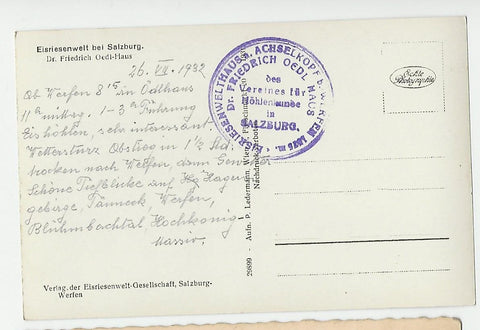 Eisriesenwelt bei Salzburg.
Dr. Friedrich Oedl-Haus
26. VII. 1932
Ob Werfen 8 15 in Oedlhaus
11 h 1-3 h Führung
Eishöhlen, sehr interessant
Wettersturz Abstieg in 1 1/2 Std.
trocken nach Werfen, dann
Schöne Tiefblicke auf Hagen
gebirge, Tänneck, Werfen,
Blühnbachtal, Hochkönig
massiv.
Verlag der Eisriesenwelt-Gesellschaft, Salzburg-
Werfen
EISRIESENWELTHAUS a. ACHSELKOPF b. WERFEN
Dr. FRIEDRICH OEDL HAUS
des
Vereines für
Höhlenkunde
in
SALZBURG.
29899 - Aufn. P. Ledermann, Wien
Nachdruck verboten
Echte
Photographie